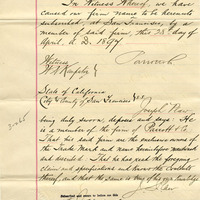 In Witness Whereof, we have
caused our firm name to be hereunto
subscribed, at San Francisco, by a
member of said firm, this 28th day of
April, A. D. 1897.
Witness
Parrott
State of California
City & County of San Francisco } SS
Joseph
being duly sworn, deposes and says: He
is a member of the firm of Parrott & Co.
That his said firm are the
of the Trade Mark and
and described. That he has read the foregoing
claim and specifications and knows the contents
thereof, and that the same is true of his own knowledge
Subscribed and sworn to before me this